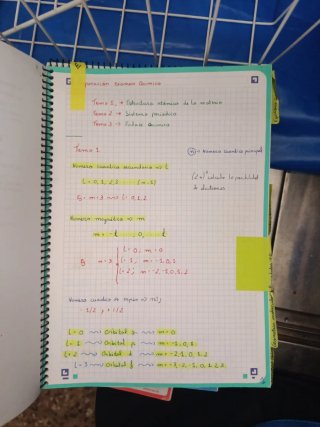 Preparación Examen Química
Tema 1 → Estructura atómica de la materia
Tema 2 → Sistema periódico
Tema 3 → Enlace Químico
Tema 1
(n) → Número cuántico principal
Número cuántico secundario => l
l = 0, 1, 2, 3 ... (n-1)
Ej. n = 3 => l = 0, 1, 2
de electrones
Número magnético => m
m = -l ... , 0, ... l
Ej. n = 3
l = 0; m = 0
l = 1; m = -1, 0, 1
l = 2; m = -2, -1, 0, 1, 2
Número cuántico de espín =>
1/2, +1/2
l = 0 Orbital s m = 0
l = 1 Orbital p m = -1, 0, 1
l = 2 Orbital d m = -2, -1, 0, 1, 2
l = 3 Orbital f m = -3, -2, -1, 0, 1, 2, 3